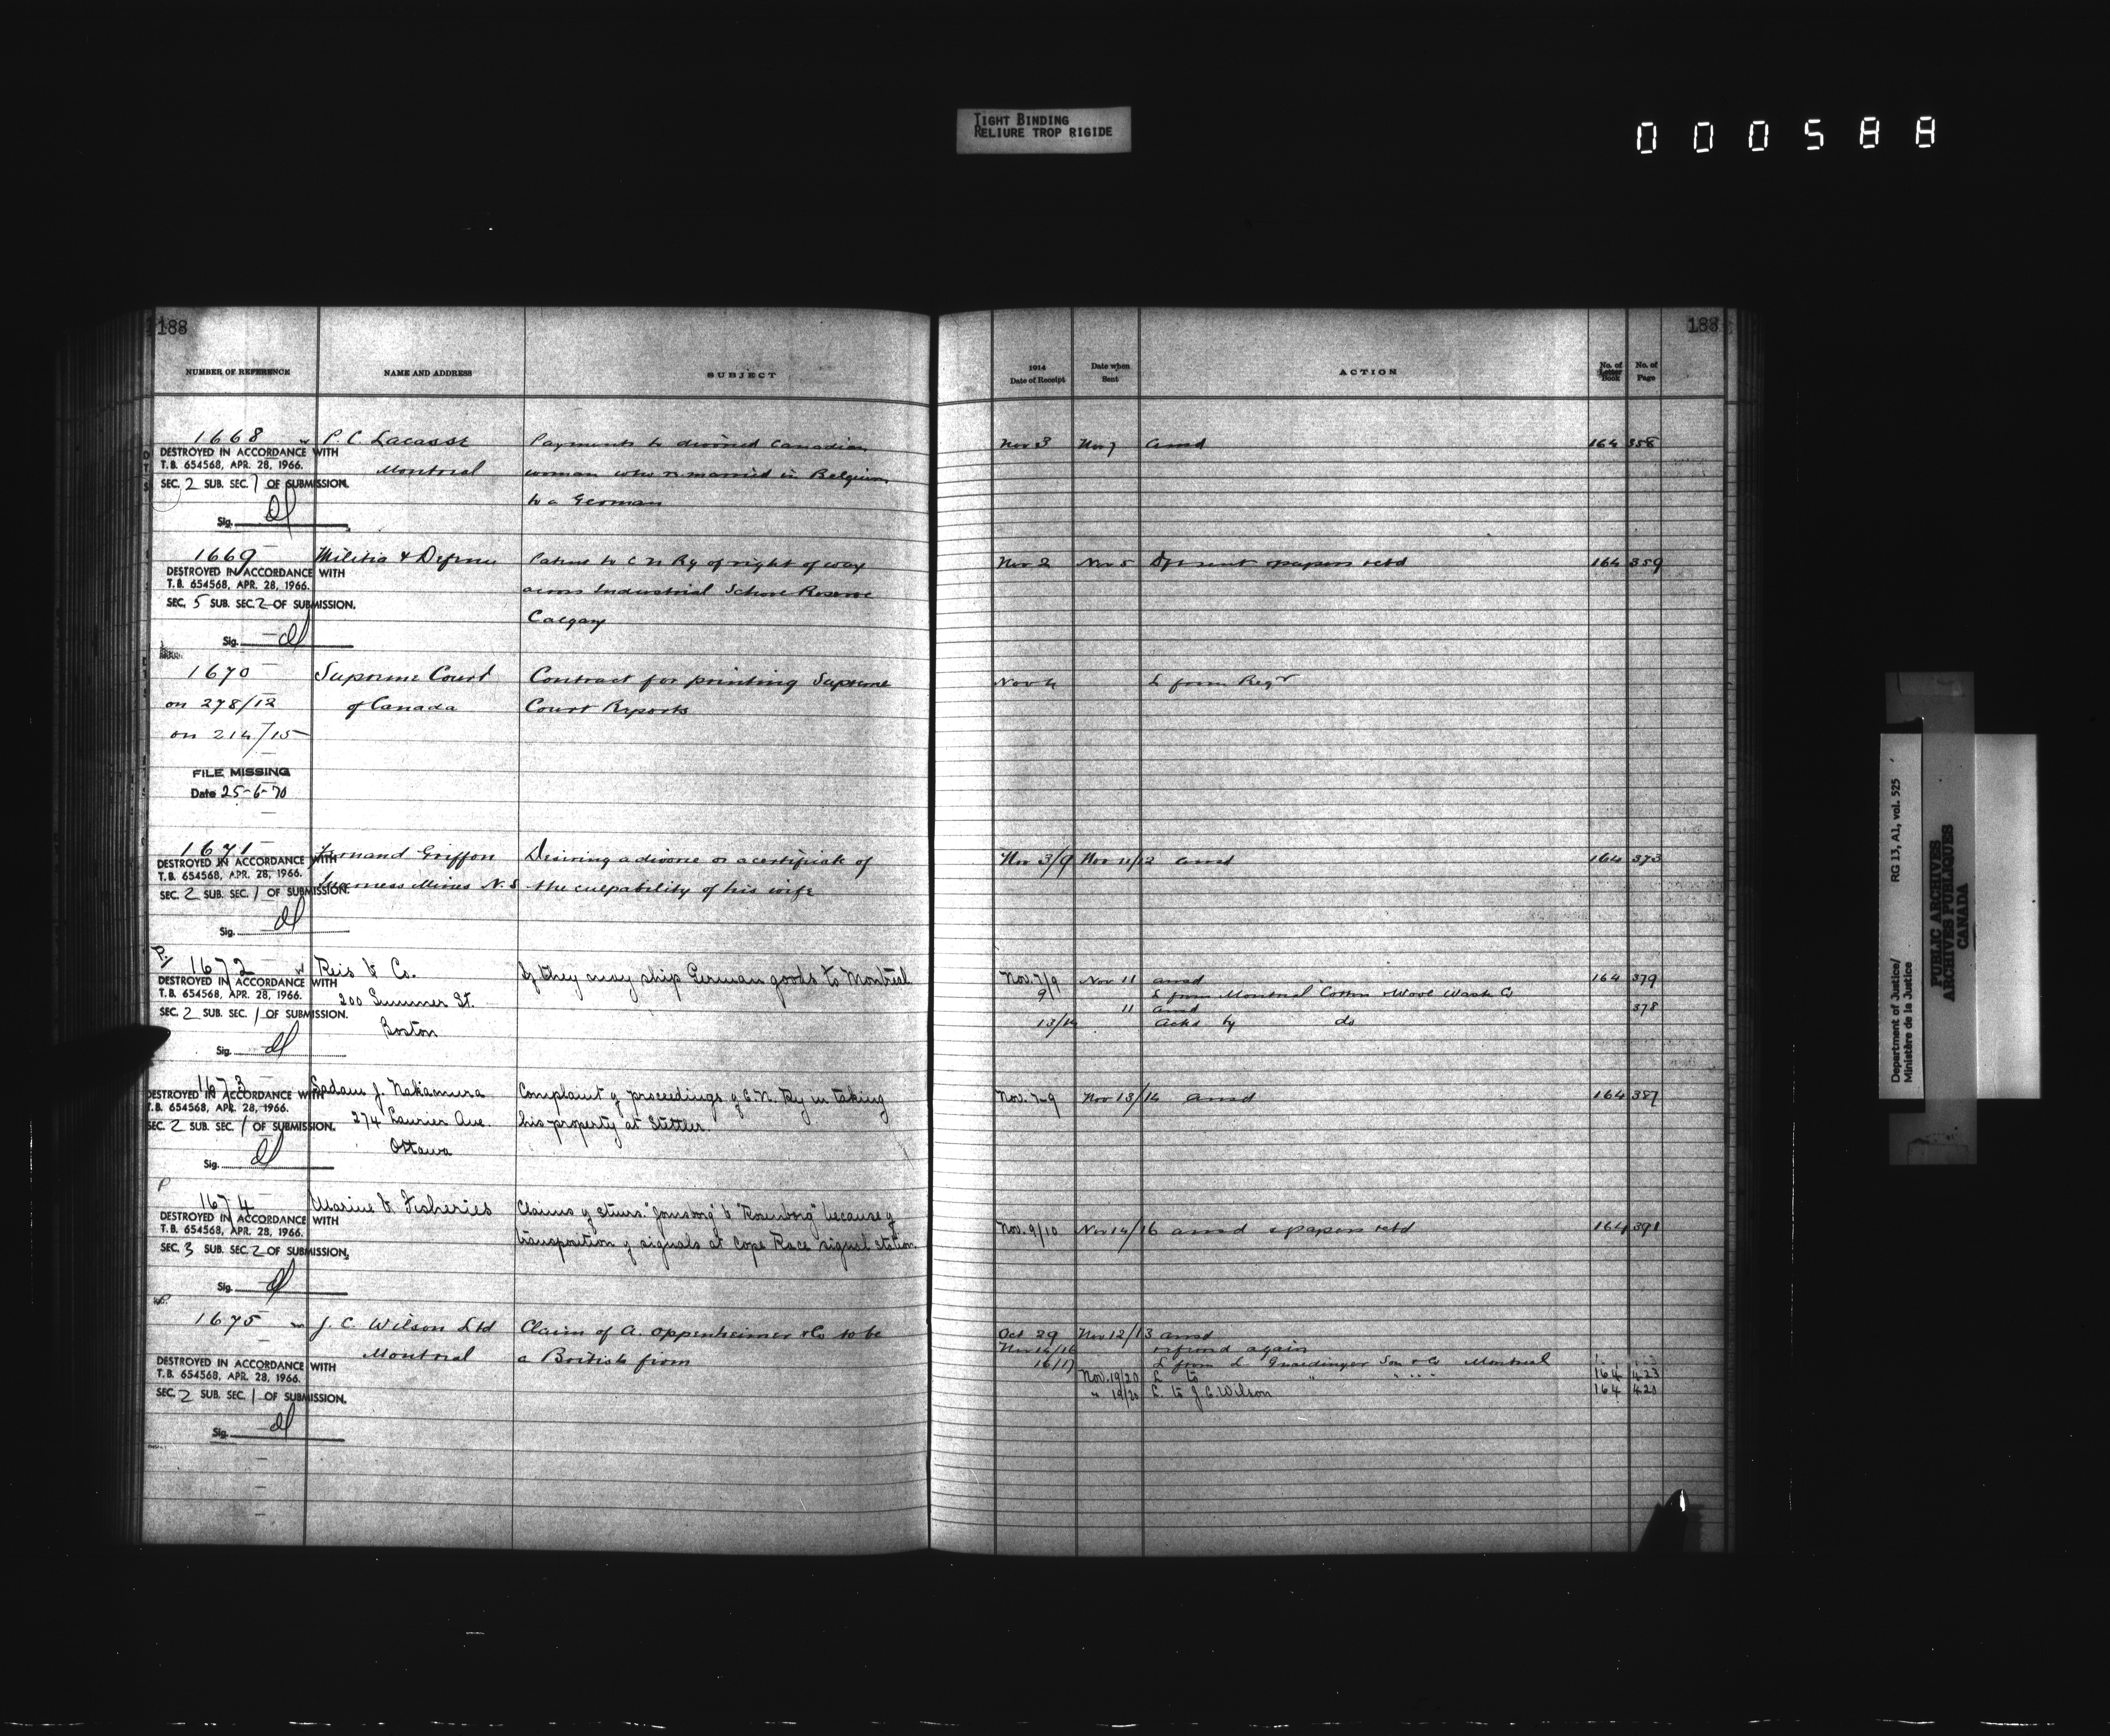 TIGHT BINDING
RELIURE TROP RIGIDE
000588
188
188
NUMBER OF REFERENCE NAME AND ADDRESS SUBJECT 1914 Date of Receipt Date when Sent ACTION No. of Letter Book No. of Page
1668 P. C. Lacasse Payments to divorced Canadian Nov 3 Nov 7 ansd 164 358
DESTROYED IN ACCORDANCE WITH
T.B. 654568, APR. 28, 1966. Montreal woman who remarried in Belgium
SEC. 2 SUB. SEC. 1 OF SUBMISSION.
to a German
Sig.
1669 Militia & Defense Patent to C N Ry of right of way Nov 2 Nov 5 Dft sent papers retd 164 359
DESTROYED IN ACCORDANCE WITH
T.B. 654568, APR. 28, 1966. across Industrial School Reserve
SEC. 5 SUB. SEC. 2 OF SUBMISSION.
Calgary
Sig.
1670 Supreme Court Contract for printing Supreme Nov 4 L from Regr
on 278/12 of Canada Court Reports
on 214/15
FILE MISSING
Date 25-6-70
1671 Fernand Griffon Desiring a divorce or a certificate of Nov 3/9 Nov 11/12 ansd 164 373
DESTROYED IN ACCORDANCE WITH
T.B. 654568, APR. 28, 1966.
Inverness Mines N.S the culpability of his wife
SEC. 2 SUB. SEC. 1 OF SUBMISSION.
Sig.
P.
1672 Reis & Co. If they may ship German goods to Montreal Nov. 7/9 Nov 11 ansd 164 379
DESTROYED IN ACCORDANCE WITH
T.B. 654568, APR. 28, 1966. 200 Summer St. 9 L from Montreal Cotton & Wool Waste Co
SEC. 2 SUB. SEC. 1 OF SUBMISSION. 11 ansd 378
Boston 13/14 acks by do
Sig.
1673 Sadam J. Nakamura Complaint of proceedings of C.N. Ry in taking Nov. 7-9 Nov 13/14 ansd 164 387
DESTROYED IN ACCORDANCE WITH
T.B. 654568, APR. 28, 1966. 274 Laurier Ave. his property at Stettler.
SEC. 2 SUB. SEC. 1 OF SUBMISSION.
Ottawa
Sig.
P
1674 Marine & Fisheries Claims of stmrs. because of
DESTROYED IN ACCORDANCE WITH
T.B. 654568, APR. 28, 1966. transposition of signals at Cape Race signal station Nov. 9/10 Nov 14/16 ansd & papers retd 164 391
SEC. 3 SUB. SEC. 2 OF SUBMISSION.
Sig.
1675 J. C. Wilson Ltd Claim of A. Oppenheimer & Co to be Oct 29 Nov 12/13 ansd
Montreal a British firm Nov 14/16 again
16/17 L from L Gnaedinger Son & Co Montreal
DESTROYED IN ACCORDANCE WITH
T.B. 654568, APR. 28, 1966. Nov. 19/20 L to " 164 423
SEC. 2 SUB. SEC. 1 OF SUBMISSION. " 19/20 L. to J. C. Wilson 164 420
Sig.
Department of Justice/
Ministère de la Justice
RG 13, A1, vol. 525
PUBLIC ARCHIVES
ARCHIVES PUBLIQUES
CANADA